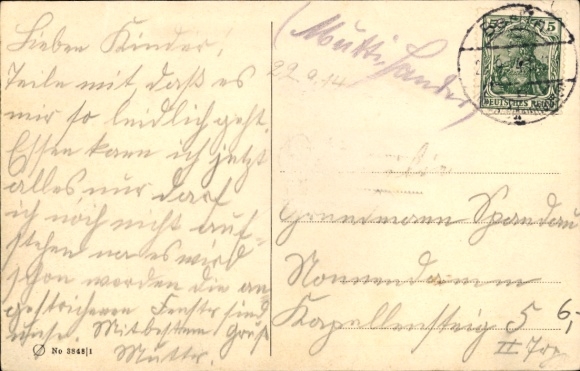 Lieben Kinder!
Teile mit, daß es
mir so leidlich geht.
Essen kann ich jetzt
alles nur darf
ich noch nicht auf-
stehen na es wird
schon werden die an
gestrichenen Fenster sind
unsre. Mit bestem Gruß
Mutter.
No 3848|1
(Mutti Sander)
29.9.14
5 5
DEUTSCHES REICH
Grundmann Spandau
Nonnendamm
Kapellensteig 5
II Trp
6,-